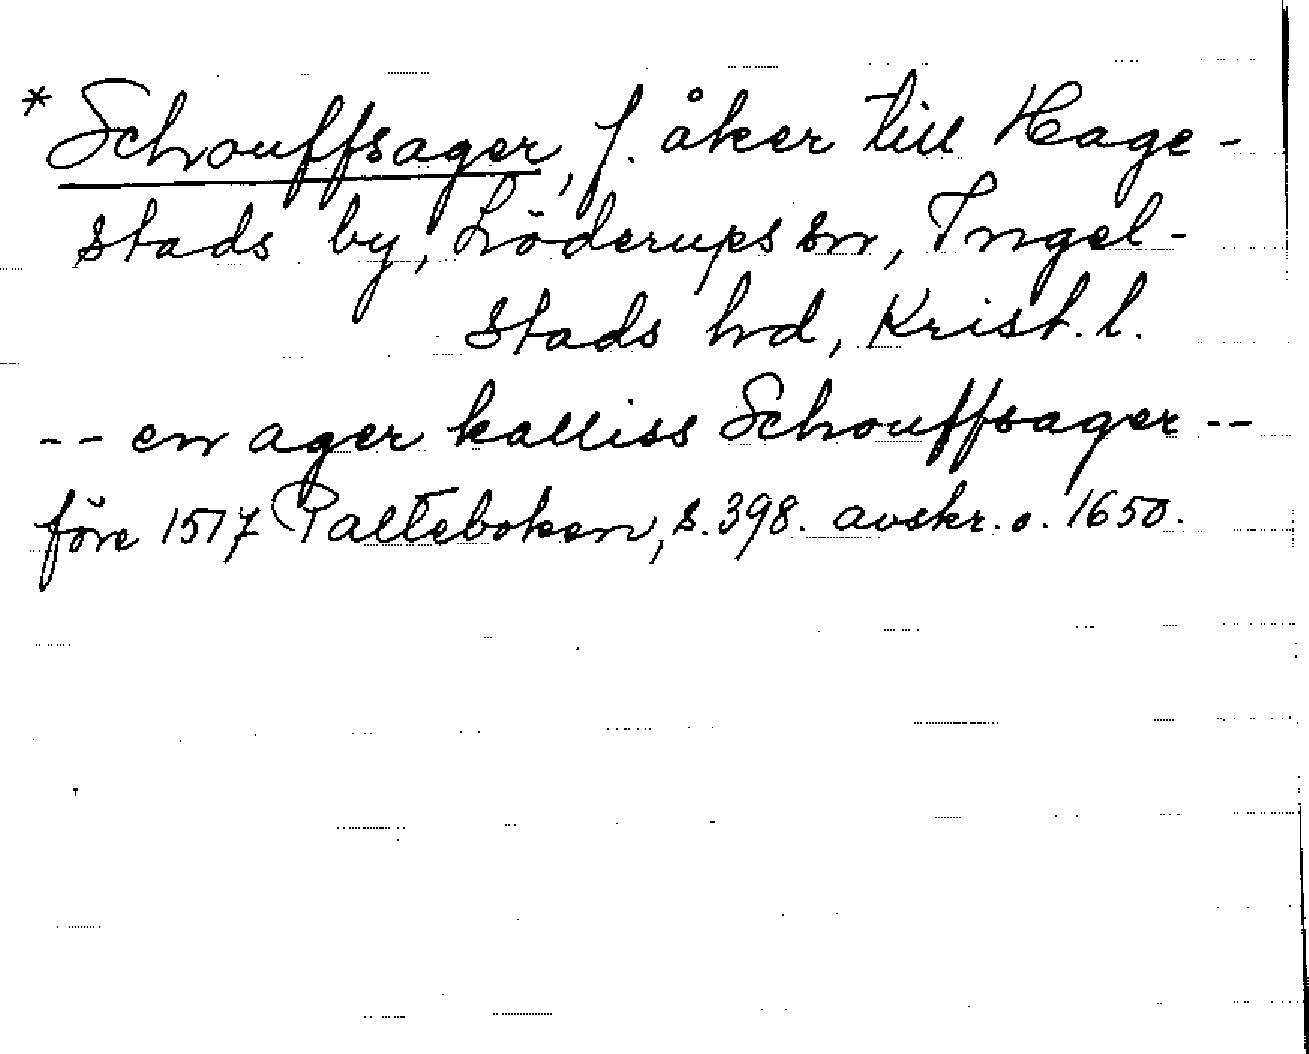 * Schouffsager, f. åker till Hage-
stads by, Löderups sn, Ingel-
stads hd, Krist. l.
-- en ager kalliss Schouffsager --
före 1517 Palteboken, s. 398. avskr. o. 1650.